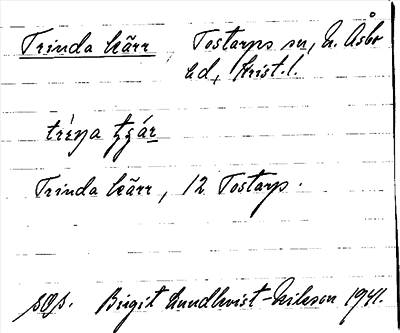 Trinda kärr Tostarps sn, N. Åsbo
hd, Krist. l.
Trinda kärr, 12 Tostarp.
sägs. Birgit Lundkvist-Nilsson 1941.